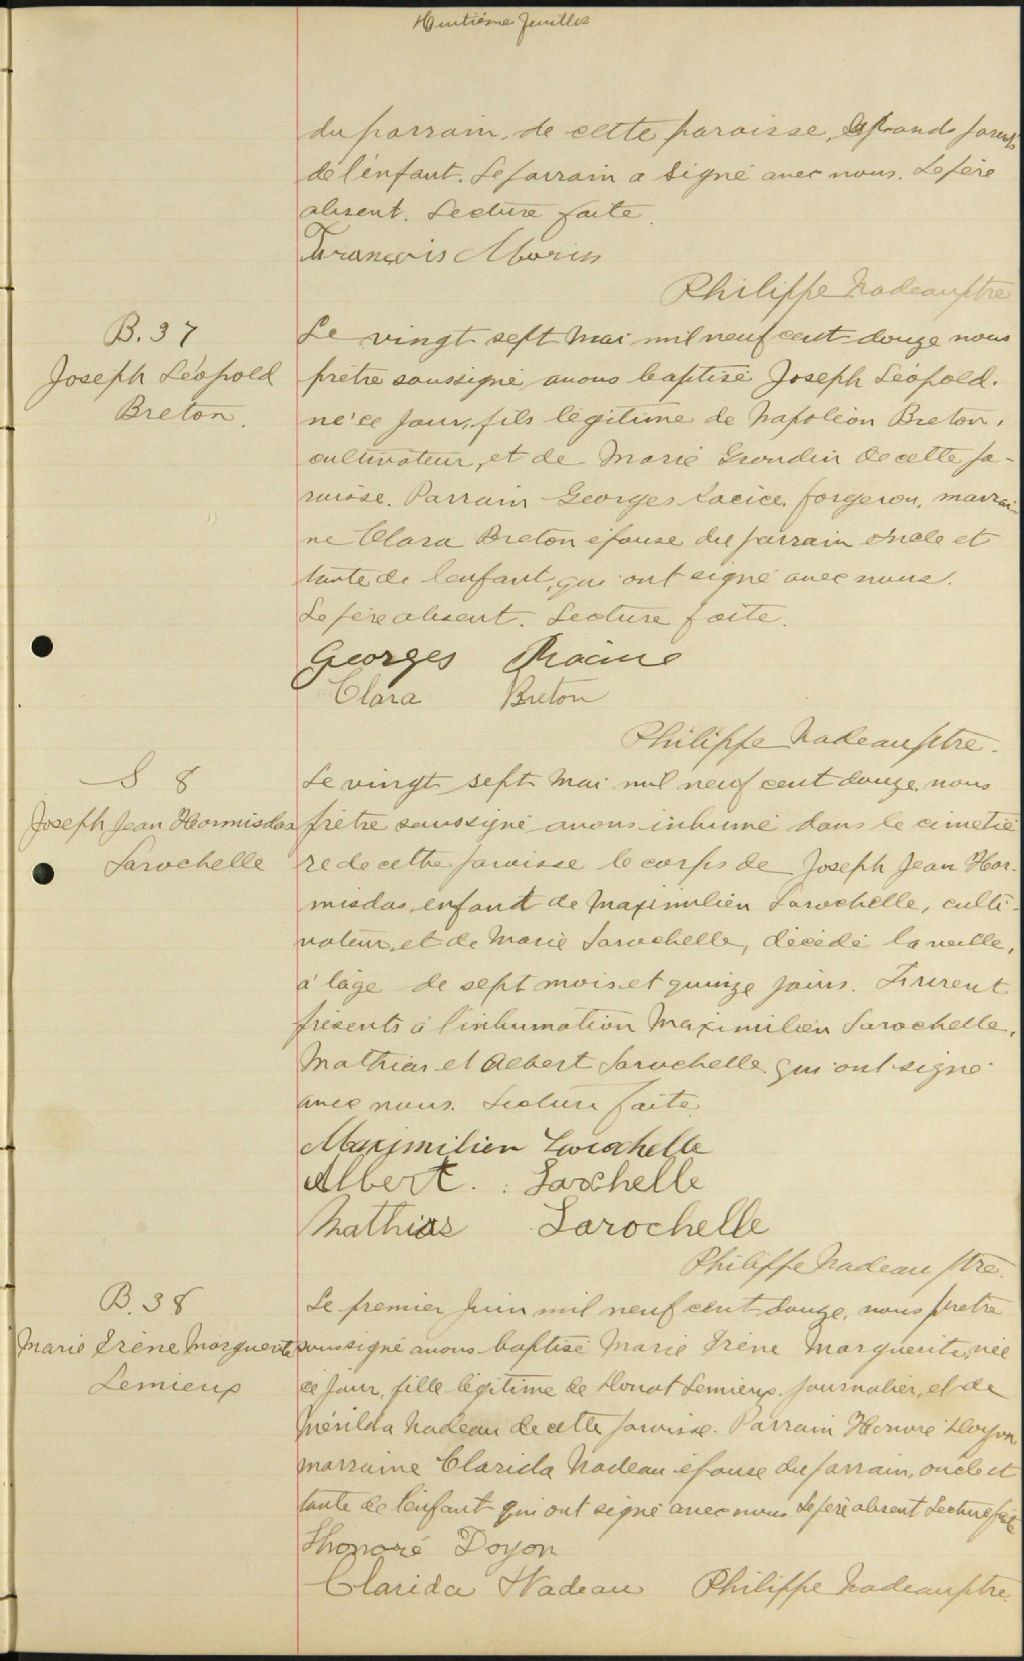 Huitième feuillet
du parrain, de cette paroisse, grands parents
de l'énfant. Le parrain a signé avec nous. Le père
absent. Lecture faite.
François Morin
Philippe Nadeau ptre
B. 37
Joseph Léopold
Breton.
Le vingt sept Mai mil neuf cent douze nous
prêtre soussigné avons baptisé Joseph Léopold.
né ce jour, fils légitime de Napoléon Breton,
cultivateur, et de Marie Grondin de cette pa-
roisse. Parrain Georges Racine, forgeron, marrai-
ne Clara Breton épouse du parrain oncle et
tante de l'enfant, qui ont signé avec nous.
Le père absent. Lecture faite.
Georges Racine
Clara Breton
Philippe Nadeau ptre.
S 8
Joseph Jean Hormisdas
Larochelle
Le vingt sept Mai mil neuf cent douze, nous
prêtre soussigné avons inhumé dans le cimetiè
re de cette paroisse le corps de Joseph Jean Hor-
misdas enfant de Maximilien Larochelle, culti-
vateur, et de Marie Larochelle, décédé la veille,
à l'âge de sept mois et quinze jours. Furent
présents à l'inhumation Maximilien Larochelle,
Mathias et Albert Larochelle qui ont signé
avec nous. Lecture faite.
Maximilien Larochelle
Albert Larochelle
Mathias Larochelle
Philippe Nadeau ptre.
B. 38
Marie Irène Marguerite
Lemieux
Le premier Juin mil neuf cent douze, nous prêtre
soussigné avons baptisé Marie Irène Marguerite, née
ce jour, fille légitime de Donat Lemieux journalier, et de
Mérilda Nadeau de cette paroisse. Parrain Honoré Doyon
marraine Clarida Nadeau épouse du parrain, oncle et
tante de l'enfant qui ont signé avec nous Le père absent Lecture faite
Honoré Doyon
Clarida Nadeau Philippe Nadeau ptre.